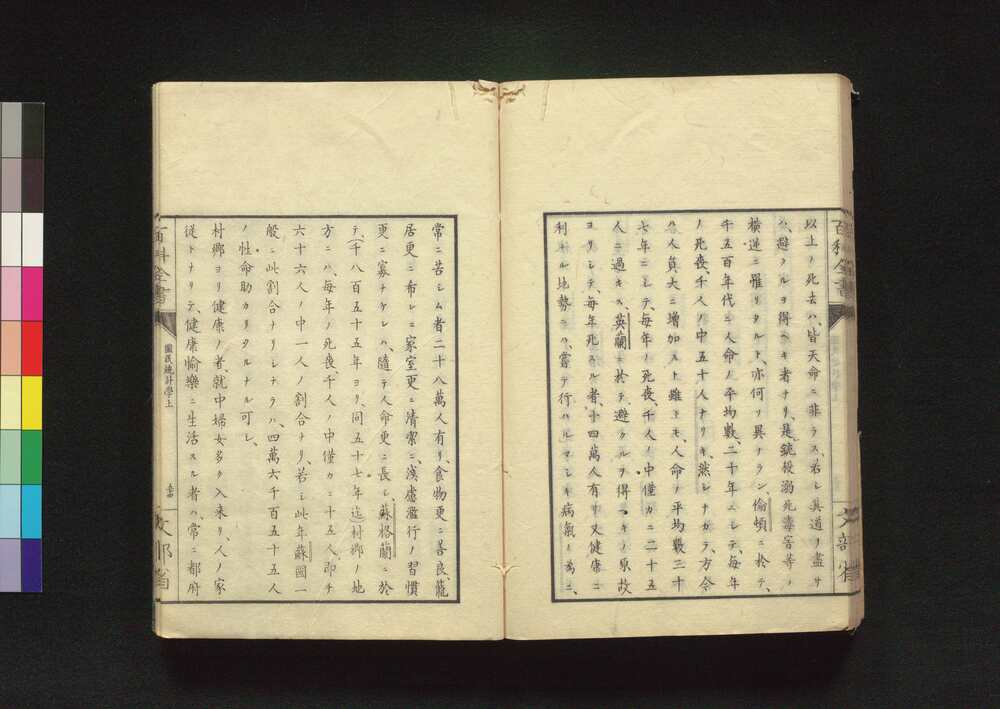 以上ノ死去ハ、皆天命ニ非ラス、若シ其道ヲ盡サ
ハ、避クルヲ得ヘキ者ナリ、是銃殺溺死毒害等ノ
横逆ニ罹リタルト、亦何ソ異ナラン、倫頓ニ於テ、
千五百年代ニ人命ノ平均數、二十年ニシテ、毎年
ノ死喪千人ノ中五十人ナリキ、然シナカラ、方今
ハ人員大ニ增加スト雖𪜈、人命ノ平均數三十
七年ニシテ、毎年ノ死喪、千人ノ中僅カニ二十五
人ニ過キス、英蘭ニ於テ避クルヲ得ヘキノ原故
ヨリシテ、毎年死スル者、十四萬人有リ、又健康ニ
利ナル比勢ラハ、嘗テ行ハルマシキ病氣ノ為ニ、
百科全書
文部省
常ニ苦シム者二十八萬人有リ、食物更ニ善良、籠
居更ニ希レニ、家室更ニ清潔ニ、淺慮濫行ノ習慣
更ニ寡ナケレハ、隨テ人命更ニ長シ、蘇格蘭ニ於
テ、千八百五十五年ヨリ、同五十七年迄、村鄉ノ地
方ニハ、每年ノ死喪、千人ノ中僅カニ十五人、即チ
六十六人ノ中一人ノ割合ナリ、若シ此年蘇國一
般ニ此割合ナリシナラハ、四萬六千百五十五人
ノ性命助カリタルナル可シ、
村鄉ヨリ健康ノ者、就中婦女多ク入來リ、人ノ家
從トナリテ、健康愉樂ニ生活スル者ハ、常ニ都府
百科全書
國民統計學上
文部省